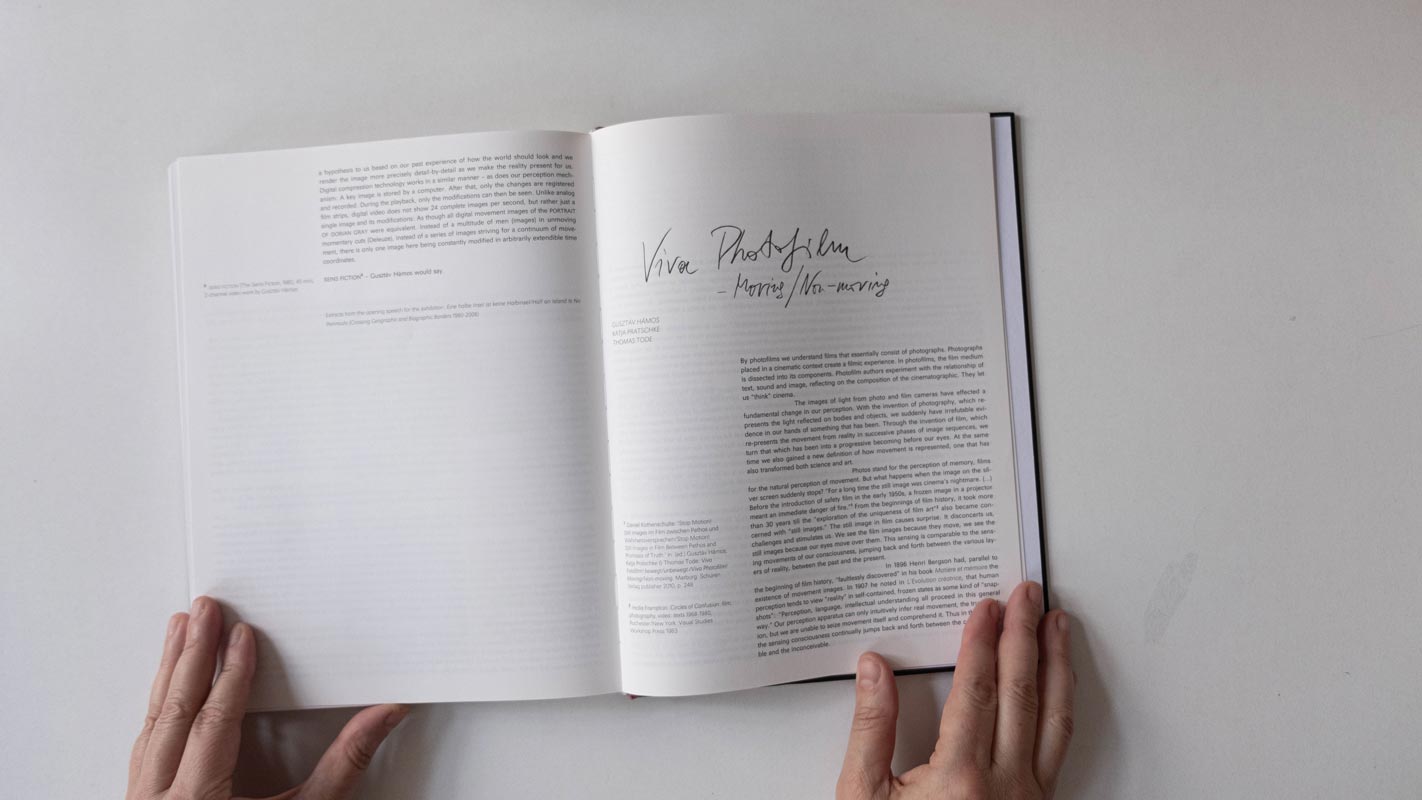 a hypothesis to us based on our past experience of how the world should look and we
render the image more precisely detail-by-detail as we make the reality present for us.
Digital compression technology works in a similar manner – as does our perception mech-
anism: A key image is stored by a computer. After that, only the changes are registered
and recorded. During the playback, only the modifications can then be seen. Unlike analog
film strips, digital video does not show 24 complete images per second, but rather just a
single image and its modifications. As though all digital movement images of the PORTRAIT
OF DORIAN GRAY were equivalent. Instead of a multitude of men (images) in unmoving
momentary cuts (Deleuze), instead of a series of images striving for a continuum of move-
ment, there is only one image here being constantly modified in arbitrarily extendible time
coordinates.
SEINS FICTION – Gusztáv Hámos would say.
(The Seins Fiction, 1980, 45 min,
2-channel video work by Gusztáv Hámos
Extracts from the opening speech for the exhibition: Eine halbe Insel ist keine Halbinsel/Half an Island Is No
Peninsula (Crossing Geographic and Biographic Borders 1980-2008)
Viva Photofilm
– Moving/Non-moving
GUSZTÁV HÁMOS
KATJA PRATSCHKE
THOMAS TODE
By photofilms we understand films that essentially consist of photographs. Photographs
placed in a cinematic context create a filmic experience. In photofilms, the film medium
is dissected into its components. Photofilm authors experiment with the relationship of
text, sound and image, reflecting on the composition of the cinematographic. They let
us "think" cinema.
The images of light from photo and film cameras have effected a
fundamental change in our perception. With the invention of photography, which re-
presents the light reflected on bodies and objects, we suddenly have irrefutable evi-
dence in our hands of something that has been. Through the invention of film, which
re-presents the movement from reality in successive phases of image sequences, we
turn that which has been into a progressive becoming before our eyes. At the same
time we also gained a new definition of how movement is represented, one that has
also transformed both science and art.
Photos stand for the perception of memory, films
for the natural perception of movement. But what happens when the image on the sil-
ver screen suddenly stops? "For a long time the still image was cinema's nightmare. (...)
Before the introduction of safety film in the early 1950s, a frozen image in a projector
meant an immediate danger of fire."¹ From the beginnings of film history, it took more
than 30 years till the "exploration of the uniqueness of film art"² also became con-
cerned with "still images." The still image in film causes surprise. It disconcerts us,
challenges and stimulates us. We see the film images because they move, we see the
still images because our eyes move over them. This sensing is comparable to the sens-
ing movements of our consciousness, jumping back and forth between the various lay-
ers of reality, between the past and the present.
In 1896 Henri Bergson had, parallel to
the beginning of film history, "faultlessly discovered" in his book Matière et mémoire the
existence of movement images. In 1907 he noted in L'Évolution créatrice, that human
perception tends to view "reality" in self-contained, frozen states as some kind of "snap-
shots": "Perception, language, intellectual understanding all proceed in this general
way." Our perception apparatus can only intuitively infer real movement, the
ion, but we are unable to seize movement itself and comprehend it. Thus in
the sensing consciousness continually jumps back and forth between the
ble and the inconceivable.
¹ Daniel Kothenschulte: "Stop Motion!
Still Images im Film zwischen Pathos und
Wahrheitsversprechen/Stop Motion!
Still Images in Film Between Pathos and
Promises of Truth," in: (ed.) Gusztáv Hámos,
Katja Pratschke & Thomas Tode: Viva
Fotofilm bewegt/unbewegt/Viva Photofilm
Moving/Non-moving, Marburg: Schüren
Verlag publisher 2010, p. 249
² Hollis Frampton: Circles of Confusion: film,
photography, video: texts 1968-1980,
Rochester New York: Visual Studies
Workshop Press 1983